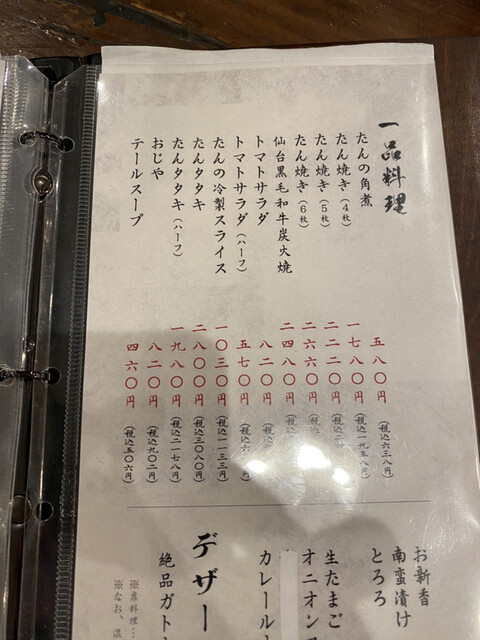 一品料理
たんの角煮 五八〇円 (税込六三八円)
たん焼き(4枚) 一七八〇円 (税込一九五八円)
たん焼き(5枚) 二二二〇円 (税込二
たん焼き(6枚) 二六六〇円 (税込
仙台黒毛和牛炭火焼 二四八〇円 (税込
トマトサラダ 八二〇円 (税込
トマトサラダ(ハーフ) 五七〇円 (税込六
たんの冷製スライス 一〇三〇円 (税込一一三三円)
たんタタキ 二八〇〇円 (税込三〇八〇円)
たんタタキ(ハーフ) 一九八〇円 (税込二一七八円)
おじや 八二〇円 (税込九〇二円)
テールスープ 四六〇円 (税込五〇六円)
お新香
南蛮漬け
とろろ
生たまご
オニオン
カレール
デザー
絶品ガト
※席料理…
※なお、